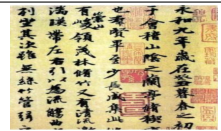 永和九年歲在癸丑暮春之初
于會稽山陰之蘭亭脩稧
也羣賢畢至少長咸集此
有崇山峻領茂林脩竹又有清流
湍暎帶左右引以為流觴
列坐其次雖無絲竹管弦